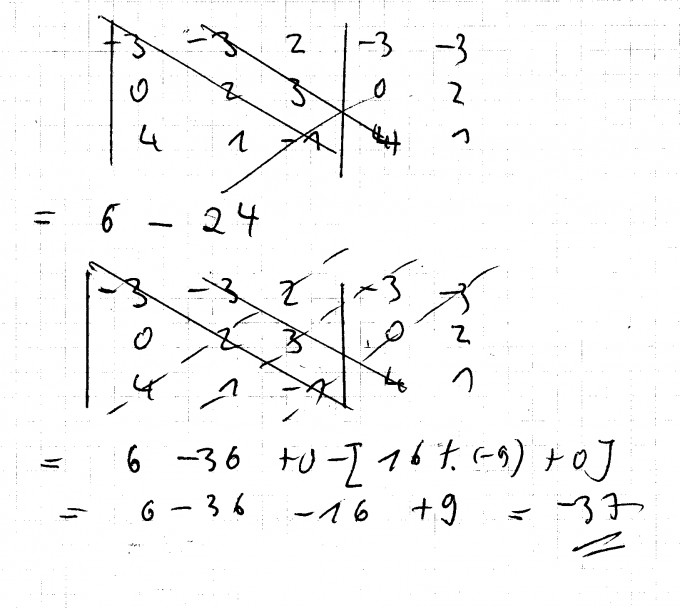 | -3 -3 2 | -3 -3
0 2 3 0 2
4 1 -1 4 1
= 6 - 24
| -3 -3 2 | -3 -3
0 2 3 0 2
4 1 -1 4 1
= 6 -36 +0 -[16 + (-9) +0]
= 6 - 36 - 16 +9 = -37